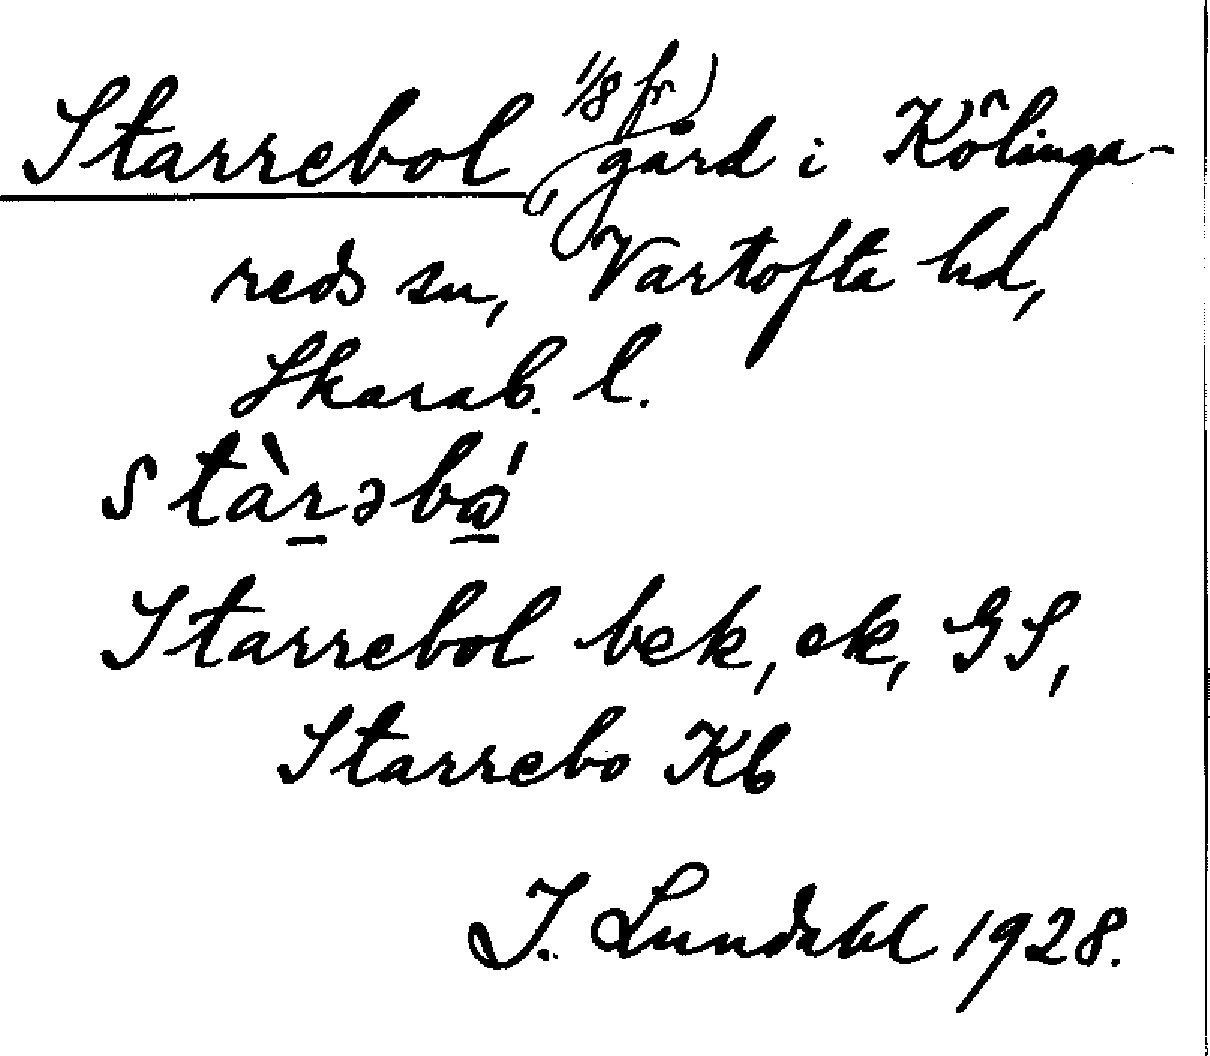 Starrebol, (1/8 fr) gård i Kölinga-
reds sn, Vartofta hd,
Skarab. l.
Starrebol bek, ek, GS,
Starrebo Kb
I. Lundahl 1928.